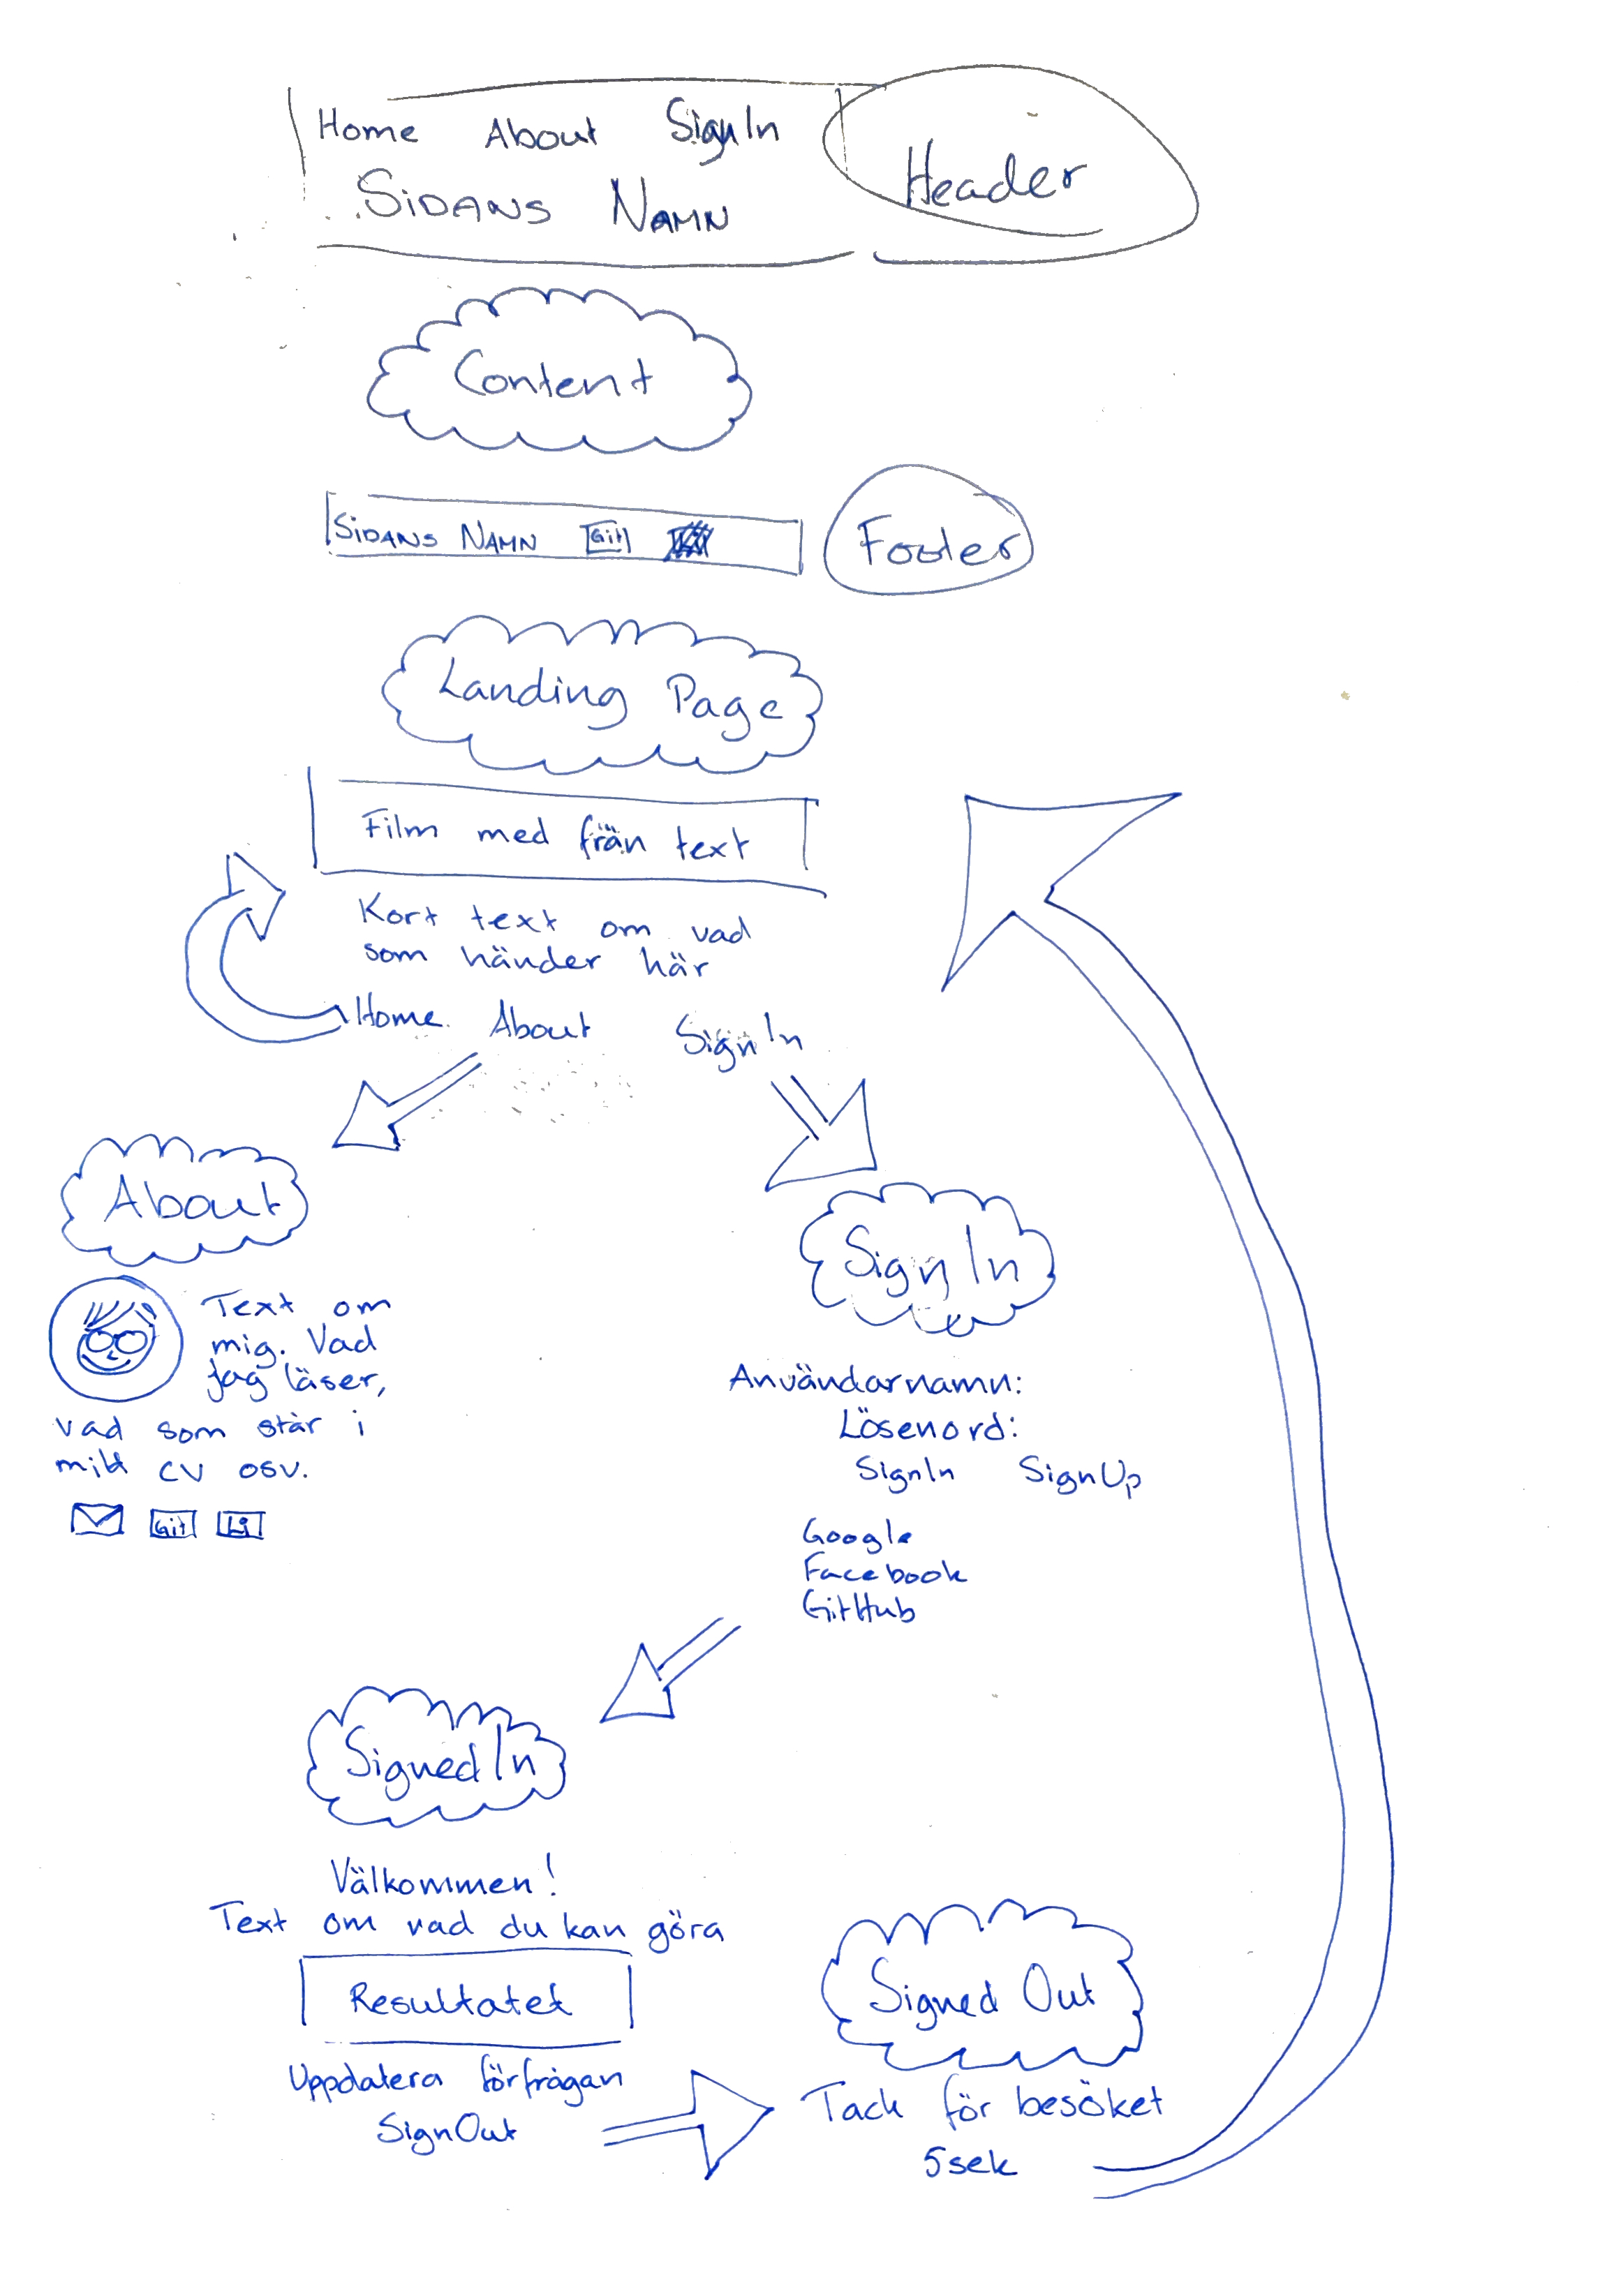 Home About SignIn
SIDANS NAMN
Header
Content
SIDANS NAMN Git
Footer
Landing Page
Film med från text
Kort text om vad
som händer här
Home About SignIn
About
Sign In
Text om
mig. Vad
jag läser,
vad som står i
mitt CV osv.
Git Li
Användarnamn:
Lösenord:
SignIn SignUp
Google
Facebook
GitHub
Signed In
Välkommen!
Text om vad du kan göra
Resultatet
Uppdatera förfrågan
SignOut
Signed Out
Tack för besöket
5sek